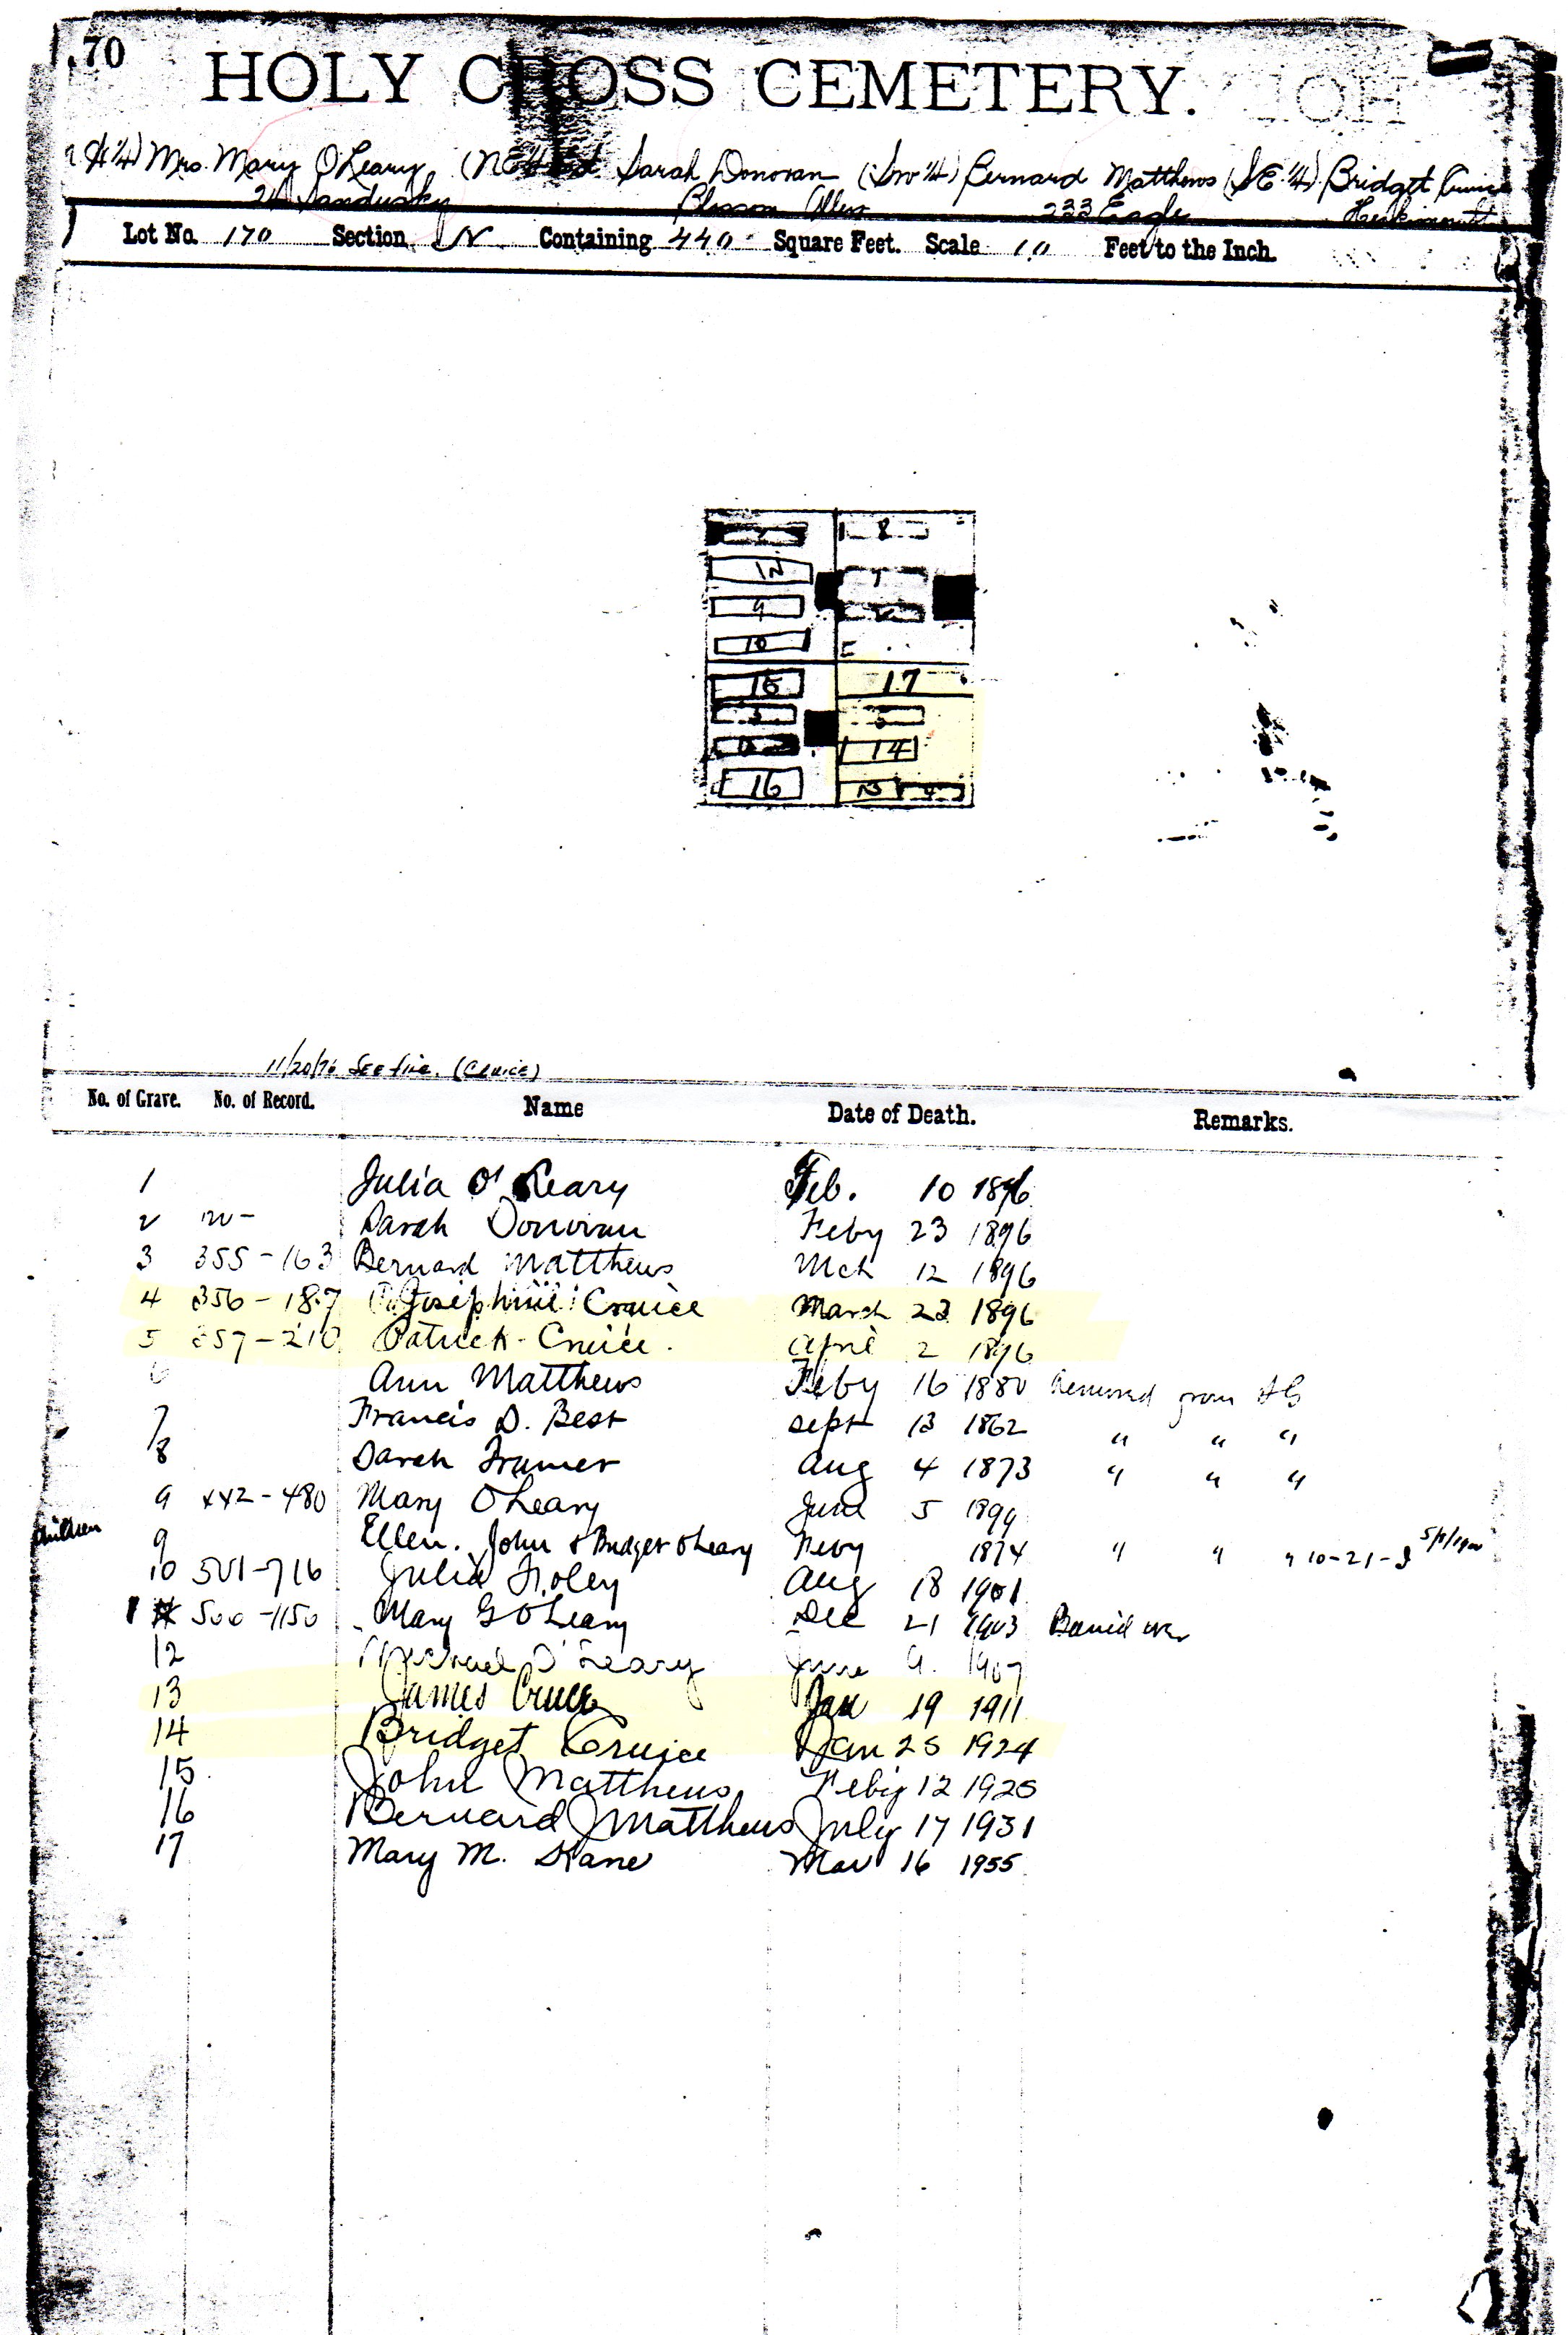 .70
HOLY CROSS CEMETERY.
Mrs. Mary O'Leary (NE Sarah Donovan (SW 1/4) Bernard Matthews (SE 1/4) Bridget
24 Sandusky Blossom Alley 233 Eagle
Lot No. 170 Section N Containing 440 Square Feet. Scale 10 Feet to the Inch.
8
12
9
10
15 17
3 5
14
16
11/20/76 See file. (Cruice)
No. of Grave. No. of Record. Name Date of Death. Remarks.
1 Julia O'Leary Feb. 10 1896
2 Sarah Donovan Feby 23 1896
3 355-163 Bernard Matthews Mch 12 1896
4 356-187 Josephine Cruice March 23 1896
5 357-210 Patrick Cruice. April 2 1896
6 Ann Matthews Feby 16 1880 Removed from
7 Francis D. Best Sept 13 1862 " " "
8 Sarah Aug 4 1873 " " "
9 442-480 Mary O'Leary June 5 1899
children 9 Ellen. John & Bridget O'Leary Feby 1874 " " "
10 501-716 Julia Foley Aug 18 1901
500-1150 Mary G O'Leary Dec 21 1903
12 Michael O'Leary June 9. 1907
13 James Cruice Jan 19 1911
14 Bridget Cruice Jan 25 1924
15 John Matthews Feby 12 1925
16 Bernard J Matthews July 17 1931
17 Mary M. Kane Mar 16 1955